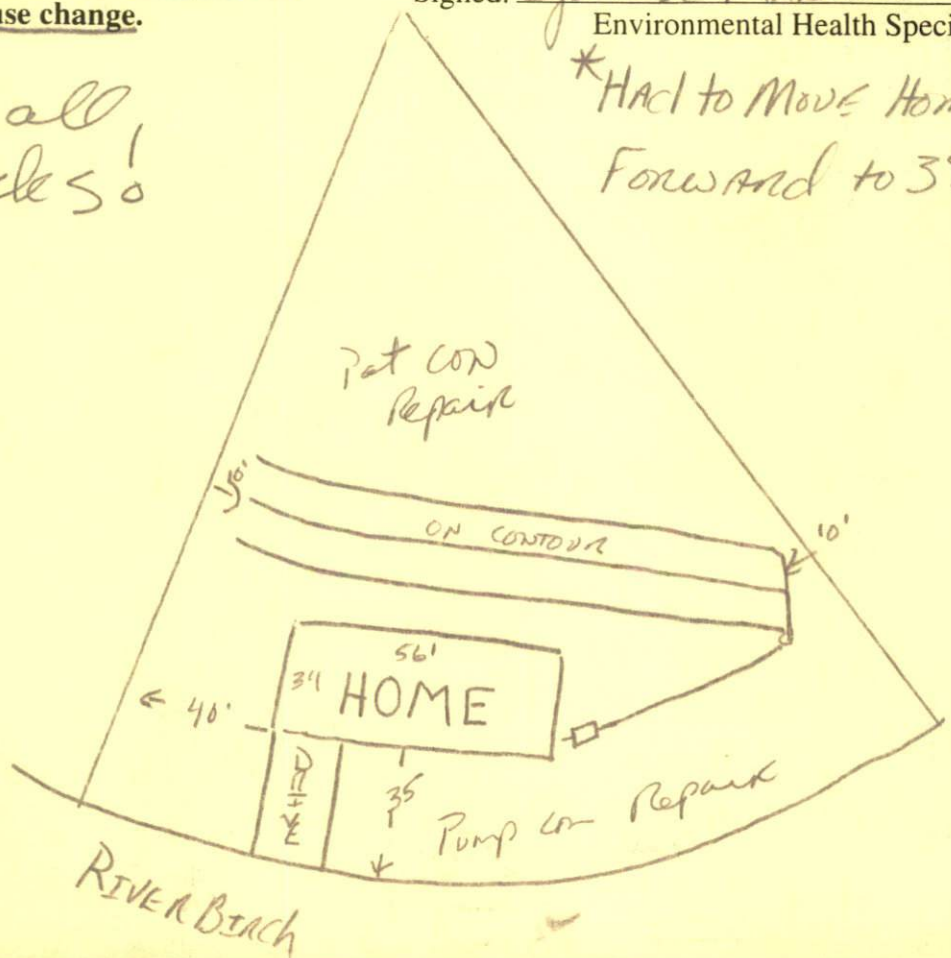 use change.
Signed:
Environmental Health Speci
all,
*HAd to MovE Hom
ForwArd to 3
Pat CON
Repair
10'
ON CONTOUR
10'
56'
34 HOME
← 40'
DRIVE
35
Pump con Repair
RIVER BIRCh